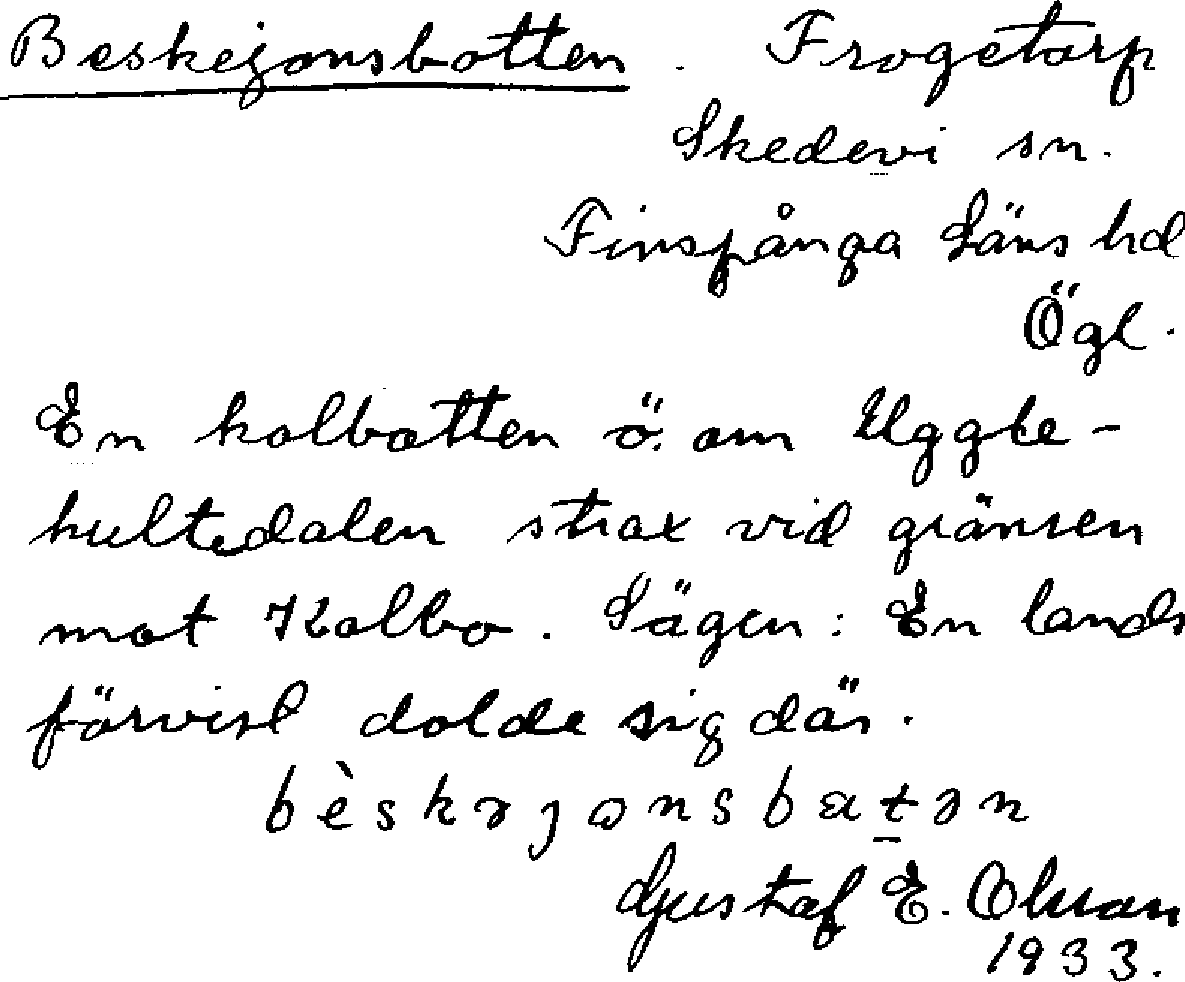 Beskejonsbotten. Frogetorp
Skedevi sn.
Finspånga Läns hd
Ögl.
En kolbotten ö. om Uggle-
hultedalen strax vid gränsen
mot Kolbo. Sägen: En lands
förvisl dolde sig där.
Gustaf E. Olsson
1933.